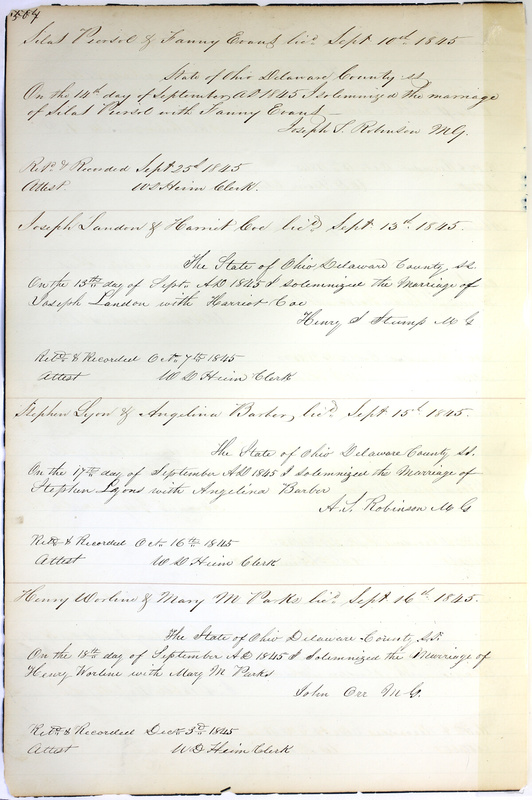 564
Silas Piersol & Fanny Evans, lic'd Sept 10th 1845
State of Ohio Delaware County ss
On the 14th day of September, AD 1845 I solemnized the marriage
of Silas Piersol with Fanny Evans
Joseph S. Robinson M.G.
Ret'd & Recorded Sept 25d 1845
Attest W D Heim Clerk.
Joseph Landon & Harriet Coe lic'd Sept 13th 1845.
The State of Ohio, Delaware County, ss.
On the 15th day of Sept. A.D 1845 I solemnized the Marriage of
Joseph Landon with Harriot Coe
Henry S Stump M G
Ret'd & Recorded Oct. 7th 1845
Attest W D Heim Clerk
Stephen Lyon & Angelina Barber, lic'd Sept 15th 1845.
The State of Ohio Delaware County ss.
On the 17th day of September A.D 1845 I solemnized the Marriage of
Stephen Lyons with Angelina Barber
A. S. Robinson M G
Ret'd & Recorded Oct. 16th 1845
Attest W D Heim Clerk
Henry Worline & Mary M Parks lic'd Sept 16th 1845.
The State of Ohio Delaware County, ss.
On the 18th day of September A.D 1845 I solemnized the Marriage of
Henry Worline with Mary M Parks
John Orr M G.
Ret'd & Recorded Dec. 3d 1845
Attest W D Heim Clerk